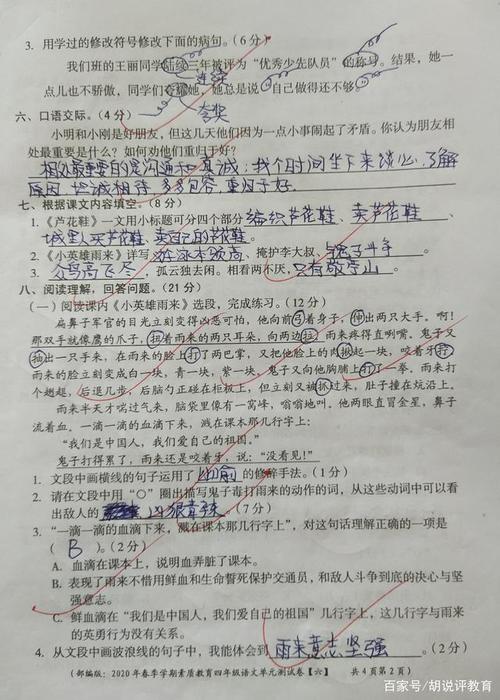 3. 用学过的修改符号修改下面的病句。(6分)
我们班的王丽同学陆续三年被评为“优秀少先队员”的称号。结果,她一
连续
点儿也不骄傲,同学们夸耀她,她总是说:自己做得还不够。
夸奖
六、口语交际。(4分)
小明和小刚是好朋友,但这几天他们因为一点小事闹起了矛盾。你认为朋友相
处最重要是什么?如何劝他们重归于好?
相处最重要的是沟通和真诚;找个时间坐下来谈心,了解
原因,坦诚相待,多多包容,重归于好。
七、根据课文内容填空。(8分)
1.《芦花鞋》一文用小标题可分四个部分编织芦花鞋、卖芦花鞋
、城里人买芦花鞋、卖自己的芦花鞋。
2.《小英雄雨来》详写游泳本领高、掩护李大叔、与鬼子斗争。
3. 众鸟高飞尽,孤云独去闲。相看两不厌,只有敬亭山。
八、阅读理解,回答问题。(21分)
(一)阅读课内《小英雄雨来》选段,完成练习。(12分)
扁鼻子军官的目光立刻变得凶恶可怕,他向前弓着身子,伸出两只大手。啊!
那双手就像鹰的爪子,扭着雨来的两只耳朵,向两边拉。雨来疼得直咧嘴。鬼子又
抽出一只手来,在雨来的脸上打了两巴掌,又把他脸上的肉揪起一块,咬着牙拧。
雨来的脸立刻变成白一块,青一块,紫一块。鬼子又向他胸脯上打了一拳。雨来打
个趔趄,后退几步,后脑勺正碰在柜板上,但立刻又被抓过来,肚子撞在炕沿上。
雨来半天才喘过气来,脑袋里像有一窝蜂,嗡嗡地叫。他两眼直冒金星,鼻子
流着血。一滴一滴的血滴下来,溅在课本那几行字上:
“我们是中国人,我们爱自己的祖国。”
鬼子打得累了,雨来还是咬着牙,说:“没看见!”
1. 文段中画横线的句子运用了的修辞手法。(1分)
2. 请在文段中用“○”圈出描写鬼子毒打雨来的动作的词,从这些动词中可以看
出敌人的凶狠毒辣(7分)
3. “一滴一滴的血滴下来,溅在课本那几行字上”,对这句话理解正确的一项是
( B )。(2分)
A. 血滴在课本上,说明血弄脏了课本。
B. 表现了雨来不惜用鲜血和生命誓死保护交通员,和敌人斗争到底的决心与坚
强意志。
C. 鲜血滴在“我们是中国人,我们爱自己的祖国”几行字上,这几行字与雨来
的英勇行为没有关系。
4. 从文段中画波浪线的句子中,我能体会到雨来意志坚强。(2分)
(部编版:2020年春季学期素质教育四年级语文单元测试卷【六】 共4页第2页)
百家号/胡说评教育